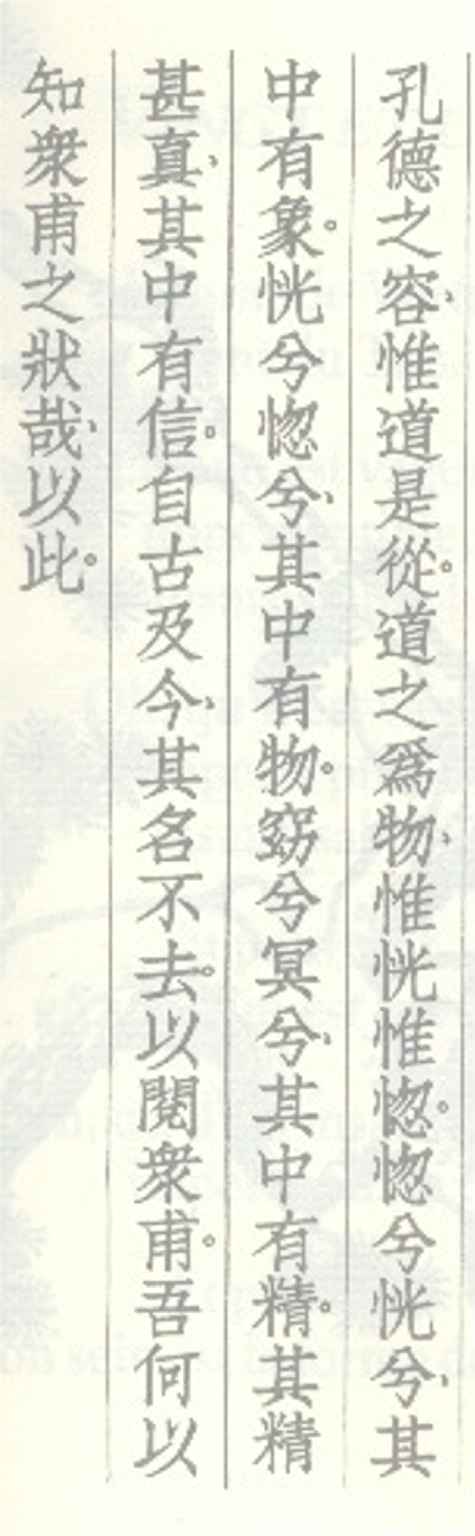 孔德之容、惟道是從。道之爲物、惟恍惟惚。惚兮恍兮、其
中有象。恍兮惚兮、其中有物。窈兮冥兮、其中有精。其精
甚真、其中有信。自古及今、其名不去。以閱衆甫。吾何以
知衆甫之狀哉、以此。